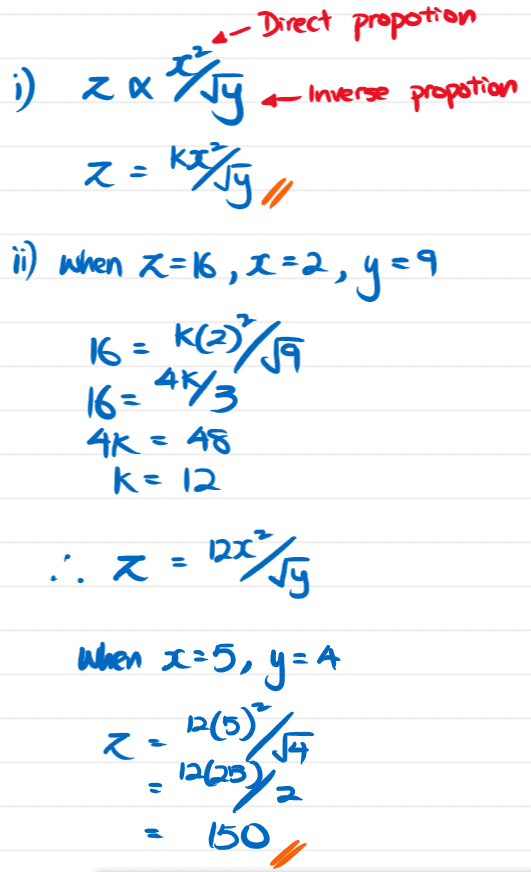 Direct propotion
i) z ∝ x²/√y
Inverse propotion
z = kx²/√y
ii) when z=16, x=2, y=9
16 = k(2)²/√9
16 = 4k/3
4k = 48
k = 12
∴ z = 12x²/√y
when x=5, y=4
z = 12(5)²/√4
= 12(25)/2
= 150